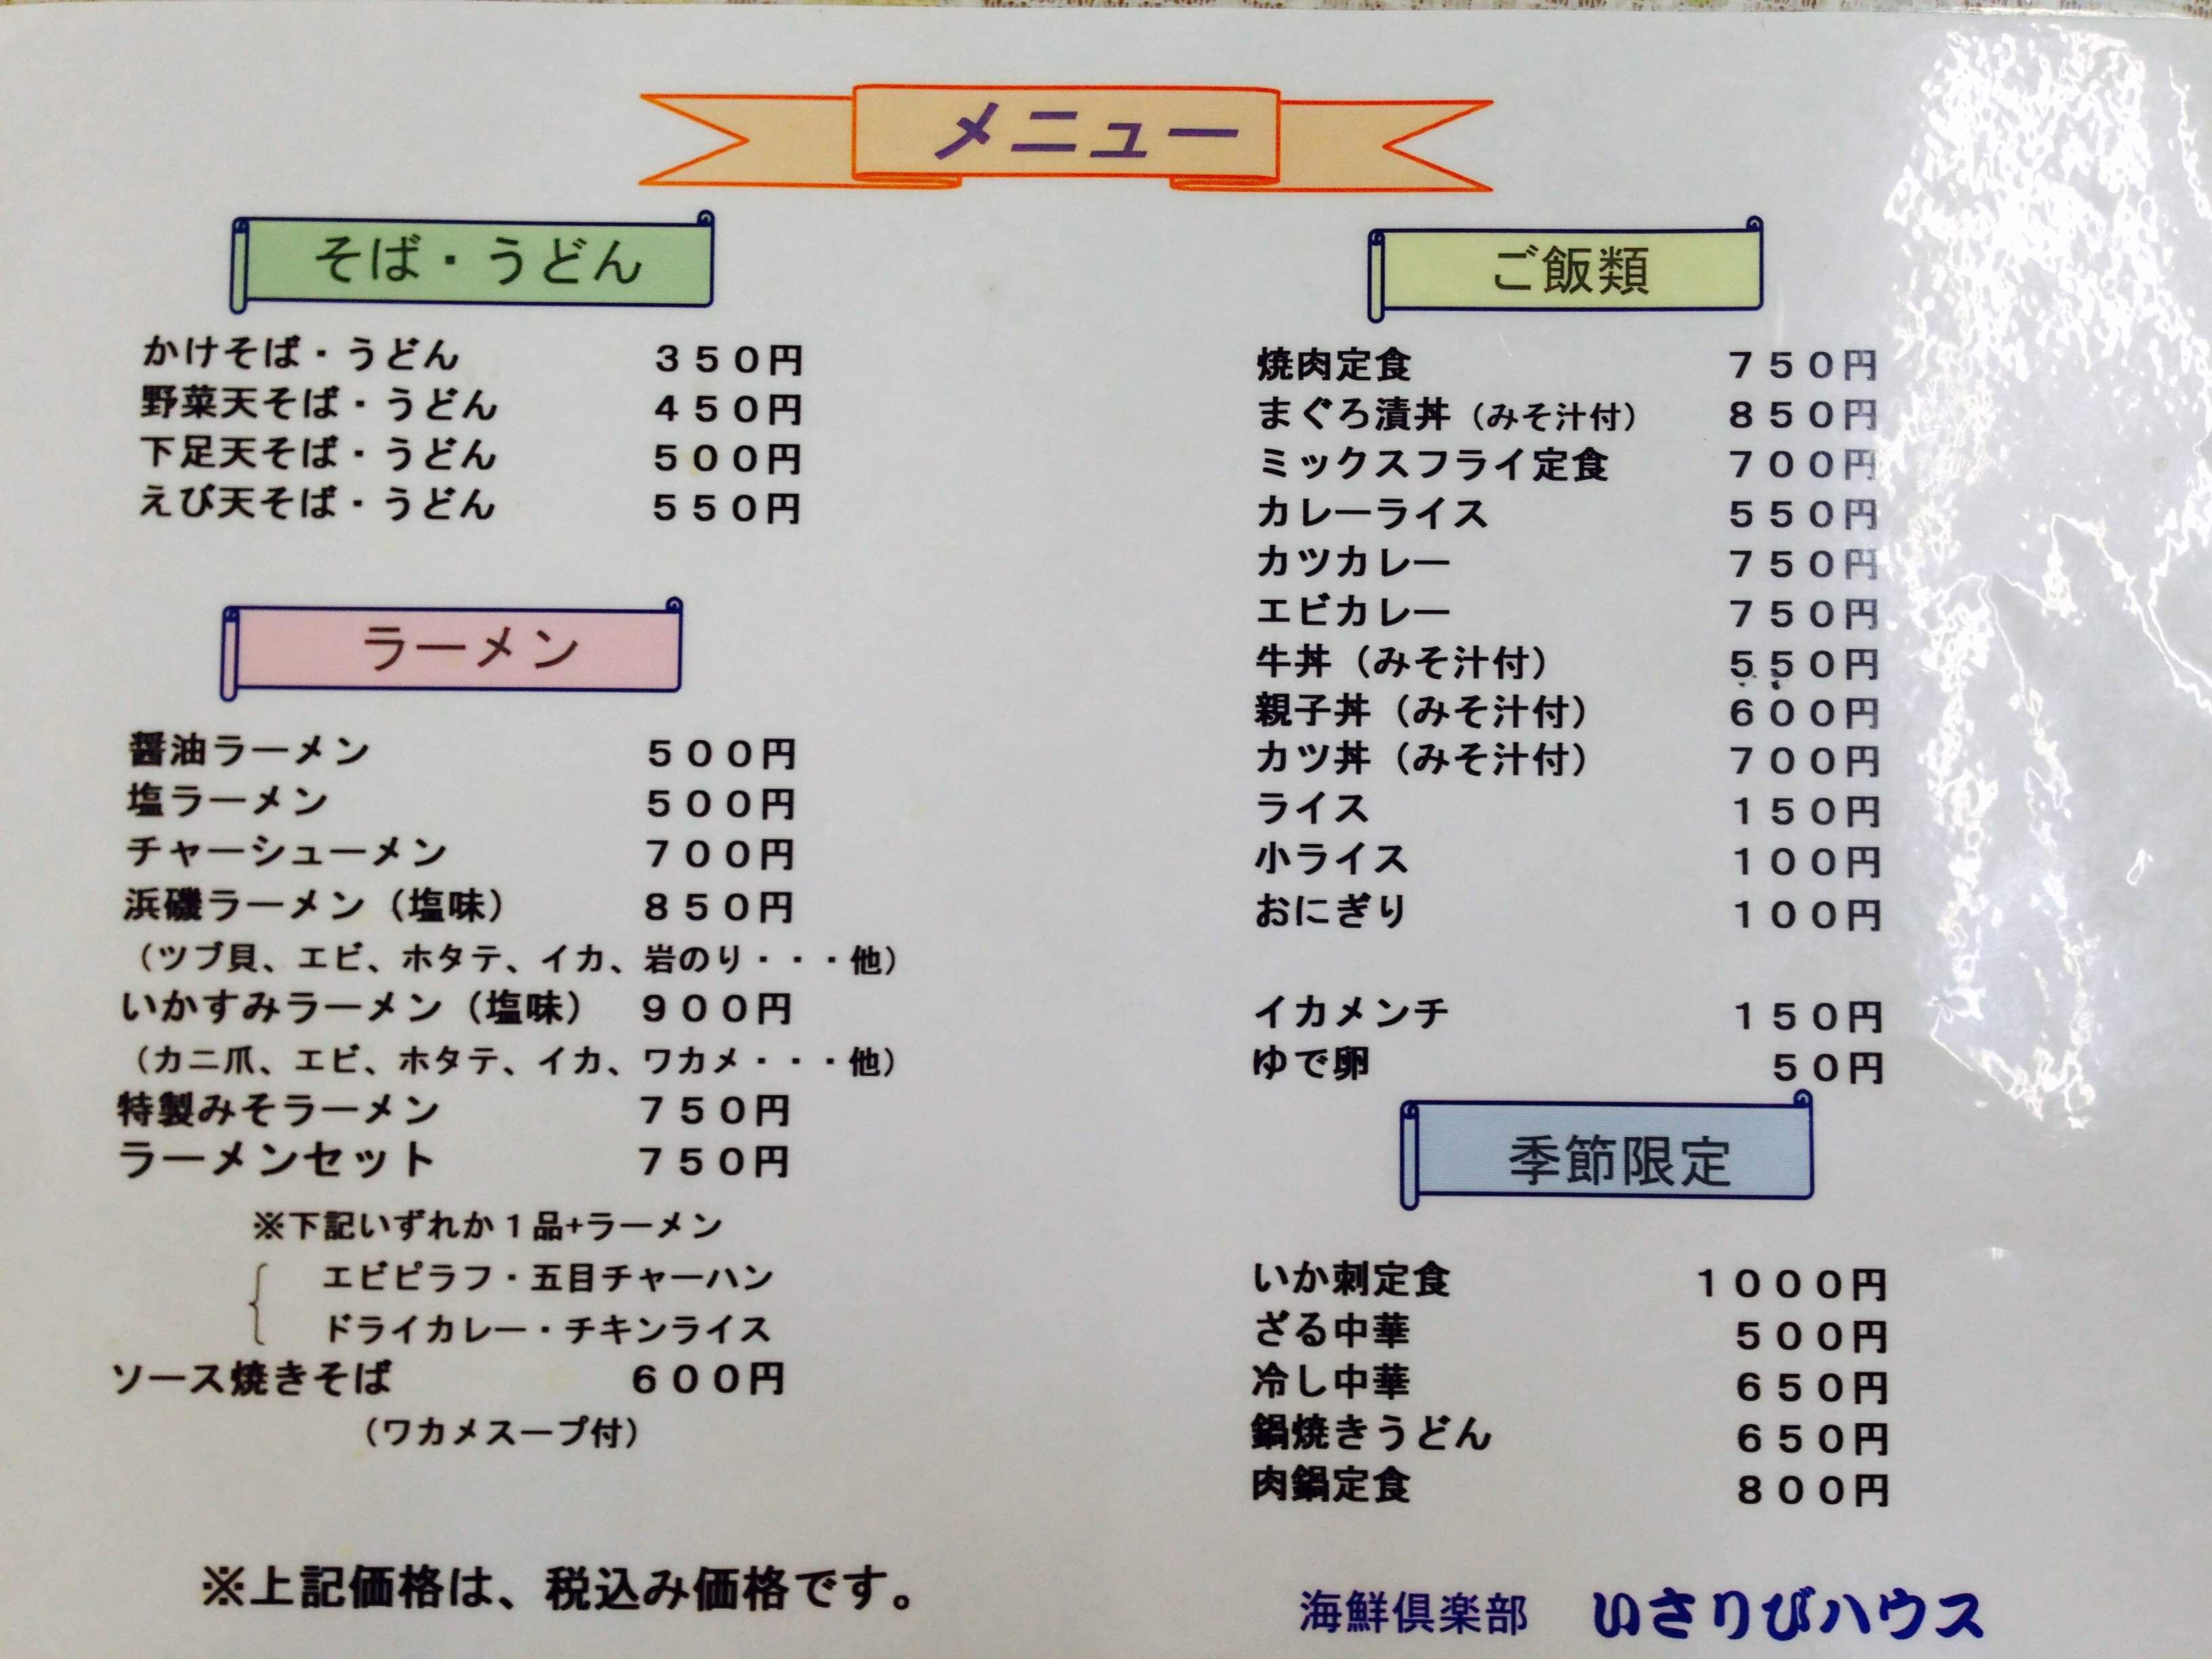 メニュー
そば・うどん
かけそば・うどん　３５０円
野菜天そば・うどん　４５０円
下足天そば・うどん　５００円
えび天そば・うどん　５５０円
ラーメン
醤油ラーメン　５００円
塩ラーメン　５００円
チャーシューメン　７００円
浜磯ラーメン（塩味）　８５０円
（ツブ貝、エビ、ホタテ、イカ、岩のり・・・他）
いかすみラーメン（塩味）　９００円
（カニ爪、エビ、ホタテ、イカ、ワカメ・・・他）
特製みそラーメン　７５０円
ラーメンセット　７５０円
※下記いずれか１品+ラーメン
エビピラフ・五目チャーハン
ドライカレー・チキンライス
ソース焼きそば　６００円
（ワカメスープ付）
※上記価格は、税込み価格です。
ご飯類
焼肉定食　７５０円
まぐろ漬丼（みそ汁付）　８５０円
ミックスフライ定食　７００円
カレーライス　５５０円
カツカレー　７５０円
エビカレー　７５０円
牛丼（みそ汁付）　５５０円
親子丼（みそ汁付）　６００円
カツ丼（みそ汁付）　７００円
ライス　１５０円
小ライス　１００円
おにぎり　１００円
イカメンチ　１５０円
ゆで卵　５０円
季節限定
いか刺定食　１０００円
ざる中華　５００円
冷し中華　６５０円
鍋焼きうどん　６５０円
肉鍋定食　８００円
海鮮倶楽部　いさりびハウス